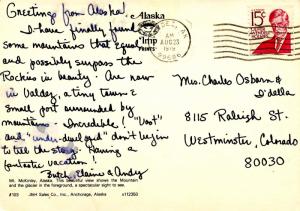 Greetings from Alaska!
I have finally found
some mountains that equal
and possibly surpass the
Rockies in beauty. Are now
in Valdez, a tiny town &
small port surrounded by
mountains - Incredible! "Vast"
and "under-developed" don't begin
to tell the story. Having a
fantastic vacation!
Butch, Elaine & Andy
Mt. McKinley, Alaska. This beautiful view shows the Mountain
and the glacier in the foreground, a spectacular sight to see.
#103 J&H Sales Co., Inc., Anchorage, Alaska
Alaska
AM
AUG 23
1979
15c
Mrs. Charles Osborn &
Idella
8115 Raleigh St.
Westminster, Colorado
80030